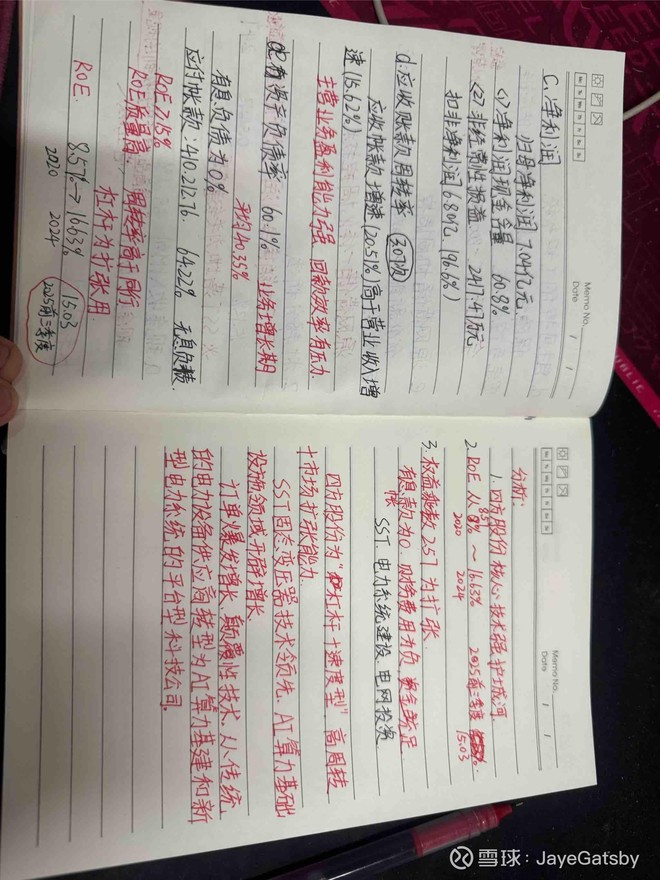 Memo No.
Date / /
C.净利润
归母净利润 7.04亿元
(1)净利润现金含量 60.8%
(2)非经常性损益 2417.41万元
扣非净利润 6.80亿(96.6%)
d.应收账款周转率 30次
应收账款增速(20.51%)高于营业收入增
速(15.62%)
主营业务盈利能力强 回款效率有压力.
资产负债率 60.1% 业务增长期
平均40.35%
有息负债为0%
应付帐款:410.21276. 64.22% 无息负债.
ROE715%
ROE质量高. 周转率高于同行
杠杆为扩张用
ROE. 8.57%→16.63% 15.03
2020 2024 2025前三季度
Memo No.
Date / /
分析:
1.四方股份核心技术强 护城河
2.ROE 从8.57%~16.63% 2025前三季度
2020 2024 15.03
3.权益乘数2.57 为扩张
有息款为0 财务费用为负 资金充足
帐
SST 电力系统建设 电网投资
四方股份为"杠杆+速度型" 高周转
十市场扩张能力.
SST固态变压器技术领先、AI算力基础
设施领域开辟增长
订单爆发增长、颠覆性技术、从传统
的电力设备供应商转型为AI算力基建和新
型电力系统的平台型科技公司.
PUBLIC
雪球:JayeGatsby